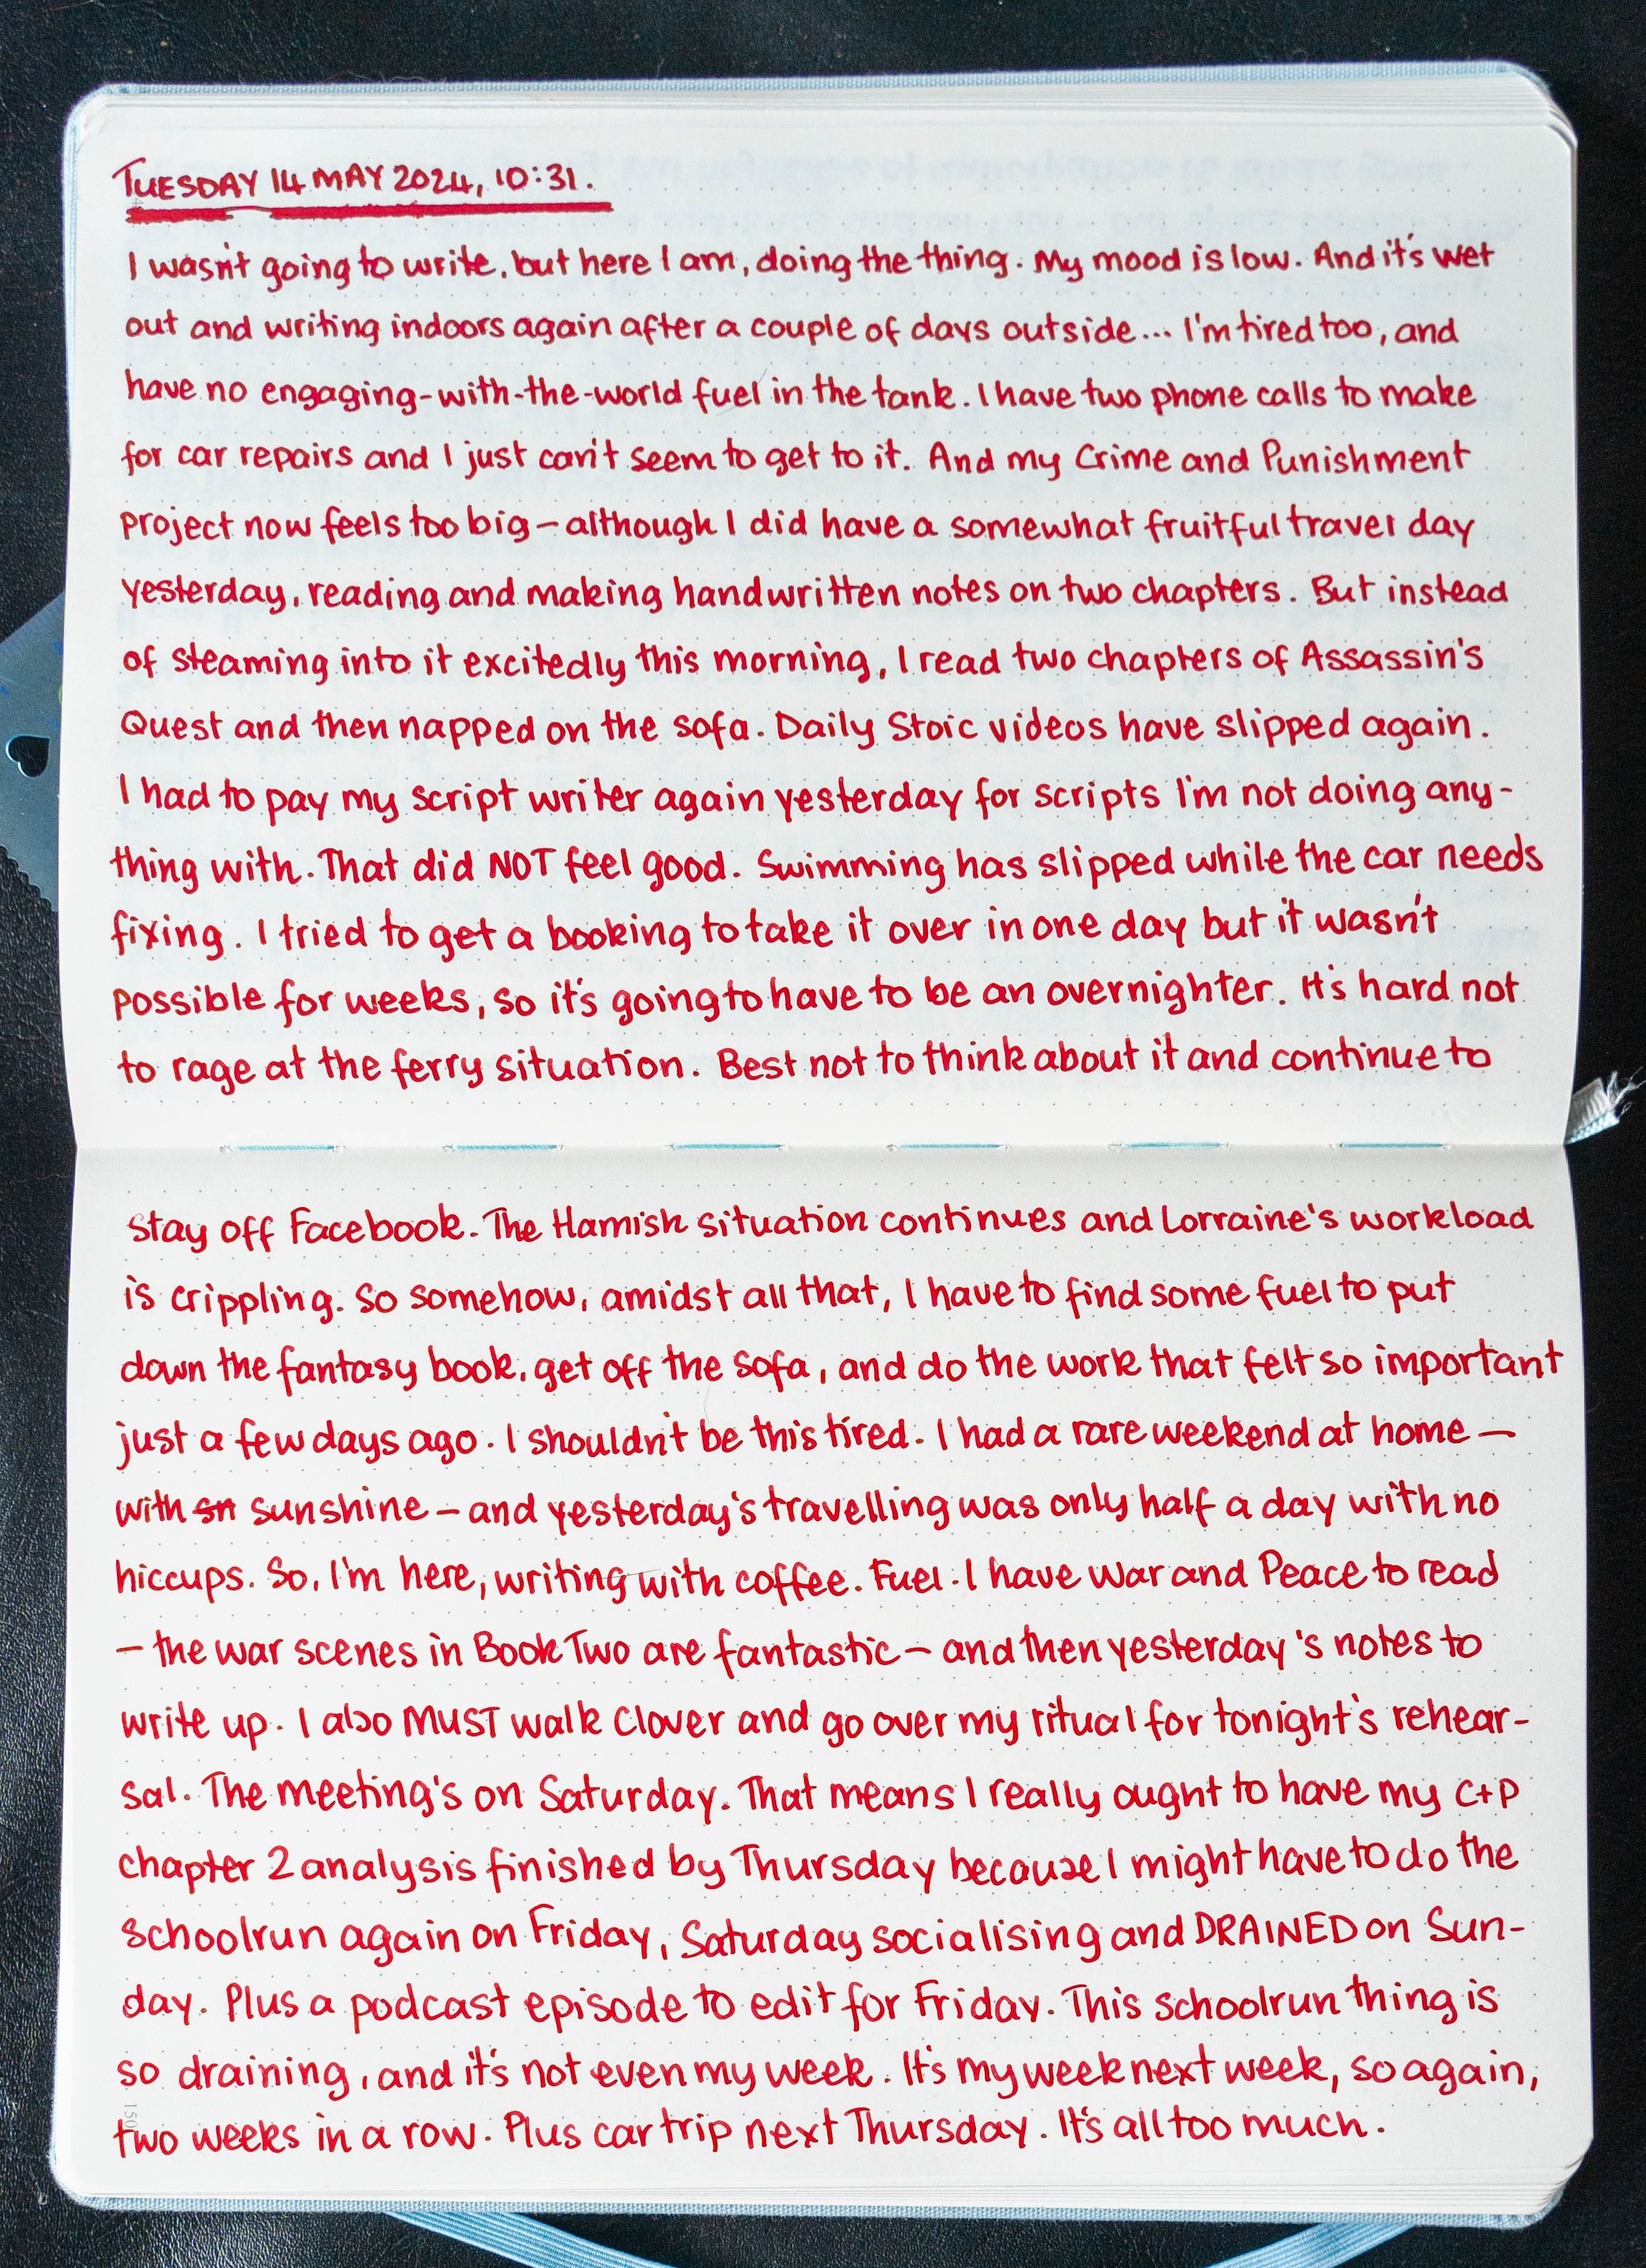 TUESDAY 14 MAY 2024, 10:31.
I wasn't going to write, but here I am, doing the thing. My mood is low. And it's wet
out and writing indoors again after a couple of days outside... I'm tired too, and
have no engaging-with-the-world fuel in the tank. I have two phone calls to make
for car repairs and I just can't seem to get to it. And my Crime and Punishment
project now feels too big – although I did have a somewhat fruitful travel day
yesterday, reading and making handwritten notes on two chapters. But instead
of steaming into it excitedly this morning, I read two chapters of Assassin's
Quest and then napped on the sofa. Daily Stoic videos have slipped again.
I had to pay my script writer again yesterday for scripts I'm not doing any-
thing with. That did NOT feel good. Swimming has slipped while the car needs
fixing. I tried to get a booking to take it over in one day but it wasn't
possible for weeks, so it's going to have to be an overnighter. It's hard not
to rage at the ferry situation. Best not to think about it and continue to
stay off Facebook. The Hamish situation continues and Lorraine's workload
is crippling. So somehow, amidst all that, I have to find some fuel to put
down the fantasy book, get off the sofa, and do the work that felt so important
just a few days ago. I shouldn't be this tired. I had a rare weekend at home –
with sn sunshine – and yesterday's travelling was only half a day with no
hiccups. So, I'm here, writing with coffee. Fuel. I have War and Peace to read
– the war scenes in Book Two are fantastic – and then yesterday's notes to
write up. I also MUST walk Clover and go over my ritual for tonight's rehear-
sal. The meeting's on Saturday. That means I really ought to have my C+P
chapter 2 analysis finished by Thursday because I might have to do the
schoolrun again on Friday, Saturday socialising and DRAINED on Sun-
day. Plus a podcast episode to edit for Friday. This schoolrun thing is
so draining, and it's not even my week. It's my week next week, so again,
two weeks in a row. Plus car trip next Thursday. It's all too much.
150